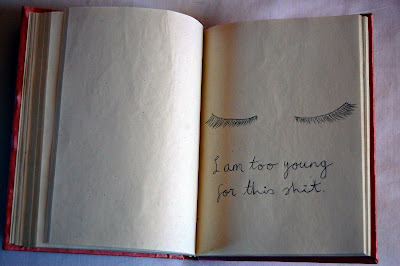 I am too young
for this shit.